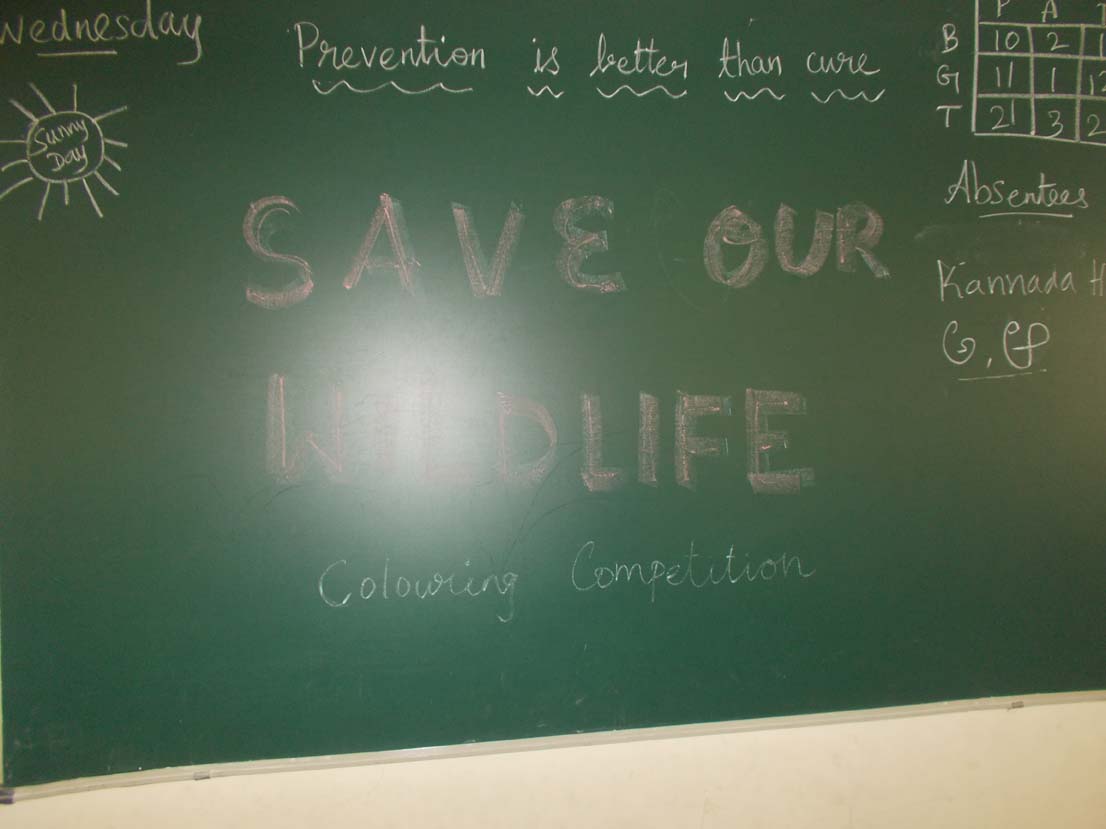 Wednesday
Sunny
Day
Prevention is better than cure
P A T
B 10 2
G 11 1 12
T 21 3 2
SAVE OUR
WILDLIFE
Colouring Competition
Absentees
Kannada H